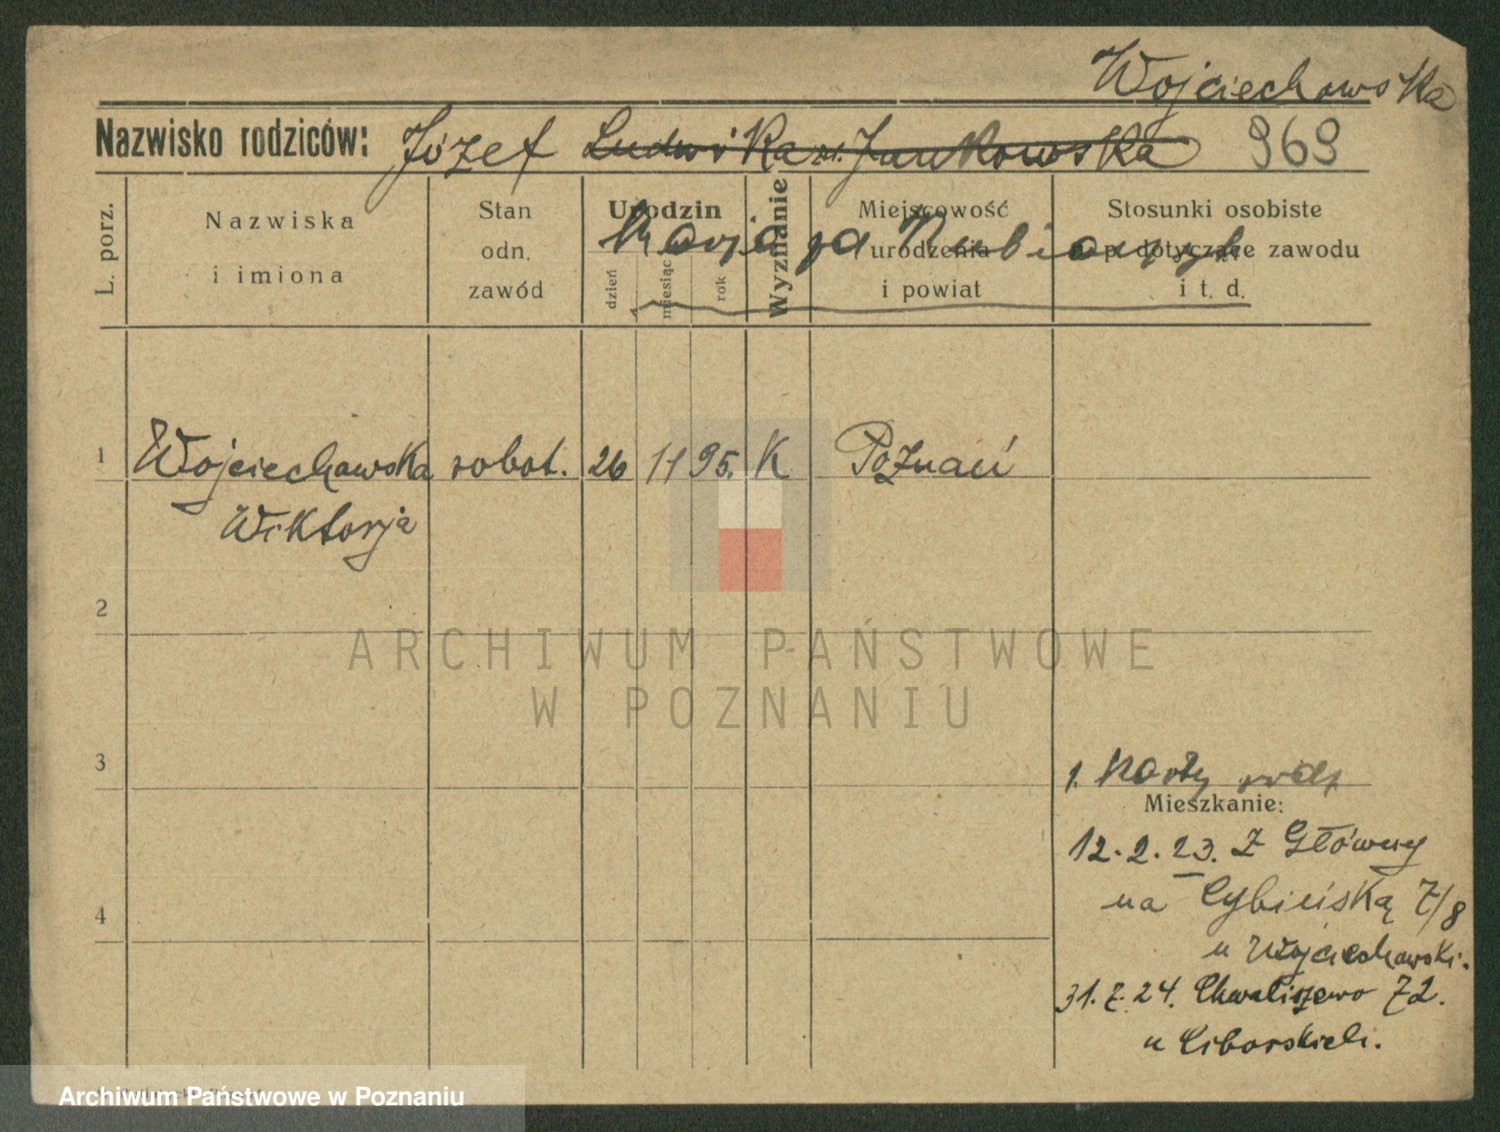 Wojciechowska
Nazwisko rodziców: Józef Ludwika z. Jankowska 969
L. porz.
Nazwiska
i imiona
Stan
odn.
zawód
Urodzin
dzień
miesiąc
rok
Wyznanie
Miejscowość
urodzenia
i powiat
Stosunki osobiste
n. p. dotyczące zawodu
i t. d.
Marja
1 Wojciechowska robot. 26 11 95. K Poznań
Wiktorja
2
ARCHIWUM PAŃSTWOWE
W POZNANIU
3
1. Karty
Mieszkanie:
12.2.23. Z Główny
na Cybińską 7/8
u Wojciechowski.
4
31.7.24. Chwaliszewo 72.
u Ciborskich.
Archiwum Państwowe w Poznaniu